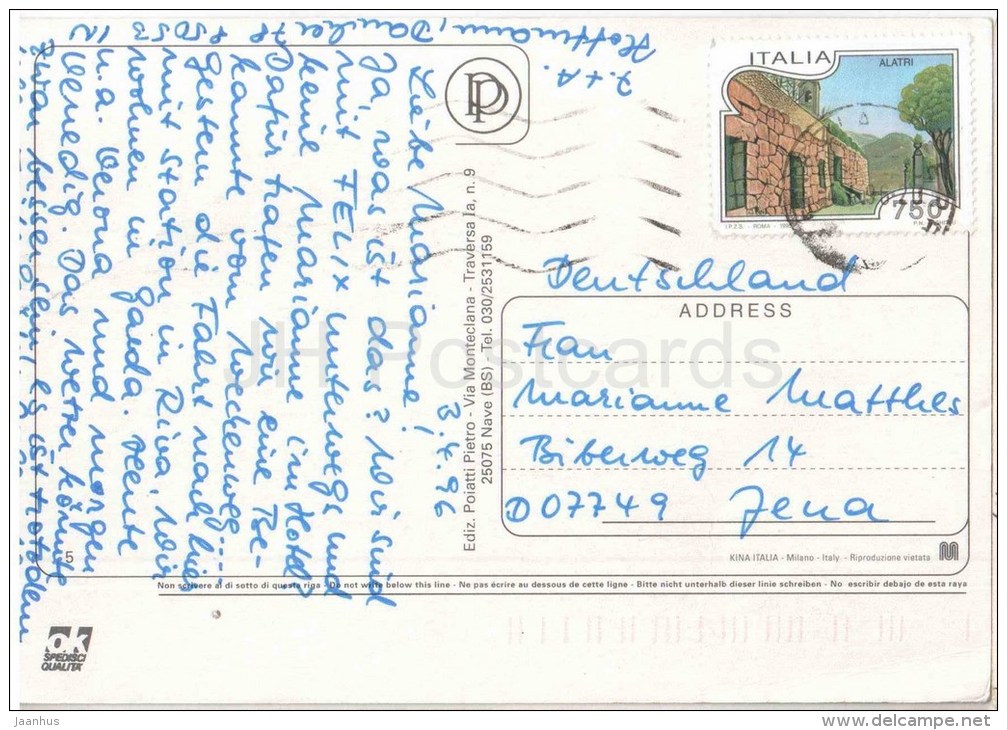 3.4.96
Liebe Marianne!
Ja, was ist das? Wir sind
mit FELIX unterwegs und
keine Mariane im Hotel?
Dafür trafen wir eine Be-
kannte vom Weckenweg...
Gestern die Fahrt nach hier
mit station in Riva, wir
wohnen in Garda. Heute
u.a. Verona und morgen
Venedig. Das Wetter könnte
zwar besser sein, es ist trotzdem
J. + A.
Hoffmann,
78
IN
ITALIA
ALATRI
750
I.P.Z.S. - ROMA -
PP
Ediz. Poiatti Pietro - Via Monteclana - Traversa Ia, n. 9
25075 Nave (BS) - Tel. 030/2531159
Deutschland
ADDRESS
Frau
Marianne Matthes
Biberweg 14
D07749 Jena
KINA ITALIA - Milano - Italy - Riproduzione vietata
5
Non scrivere al di sotto di questa riga - Do not write below this line - Ne pas écrire au dessous de cette ligne - Bitte nicht unterhalb dieser linie schreiben - No escribir debajo de esta raya
ok
SPEDISCI
QUALITÀ
JH Postcards
jaanhus
www.delcampe.net